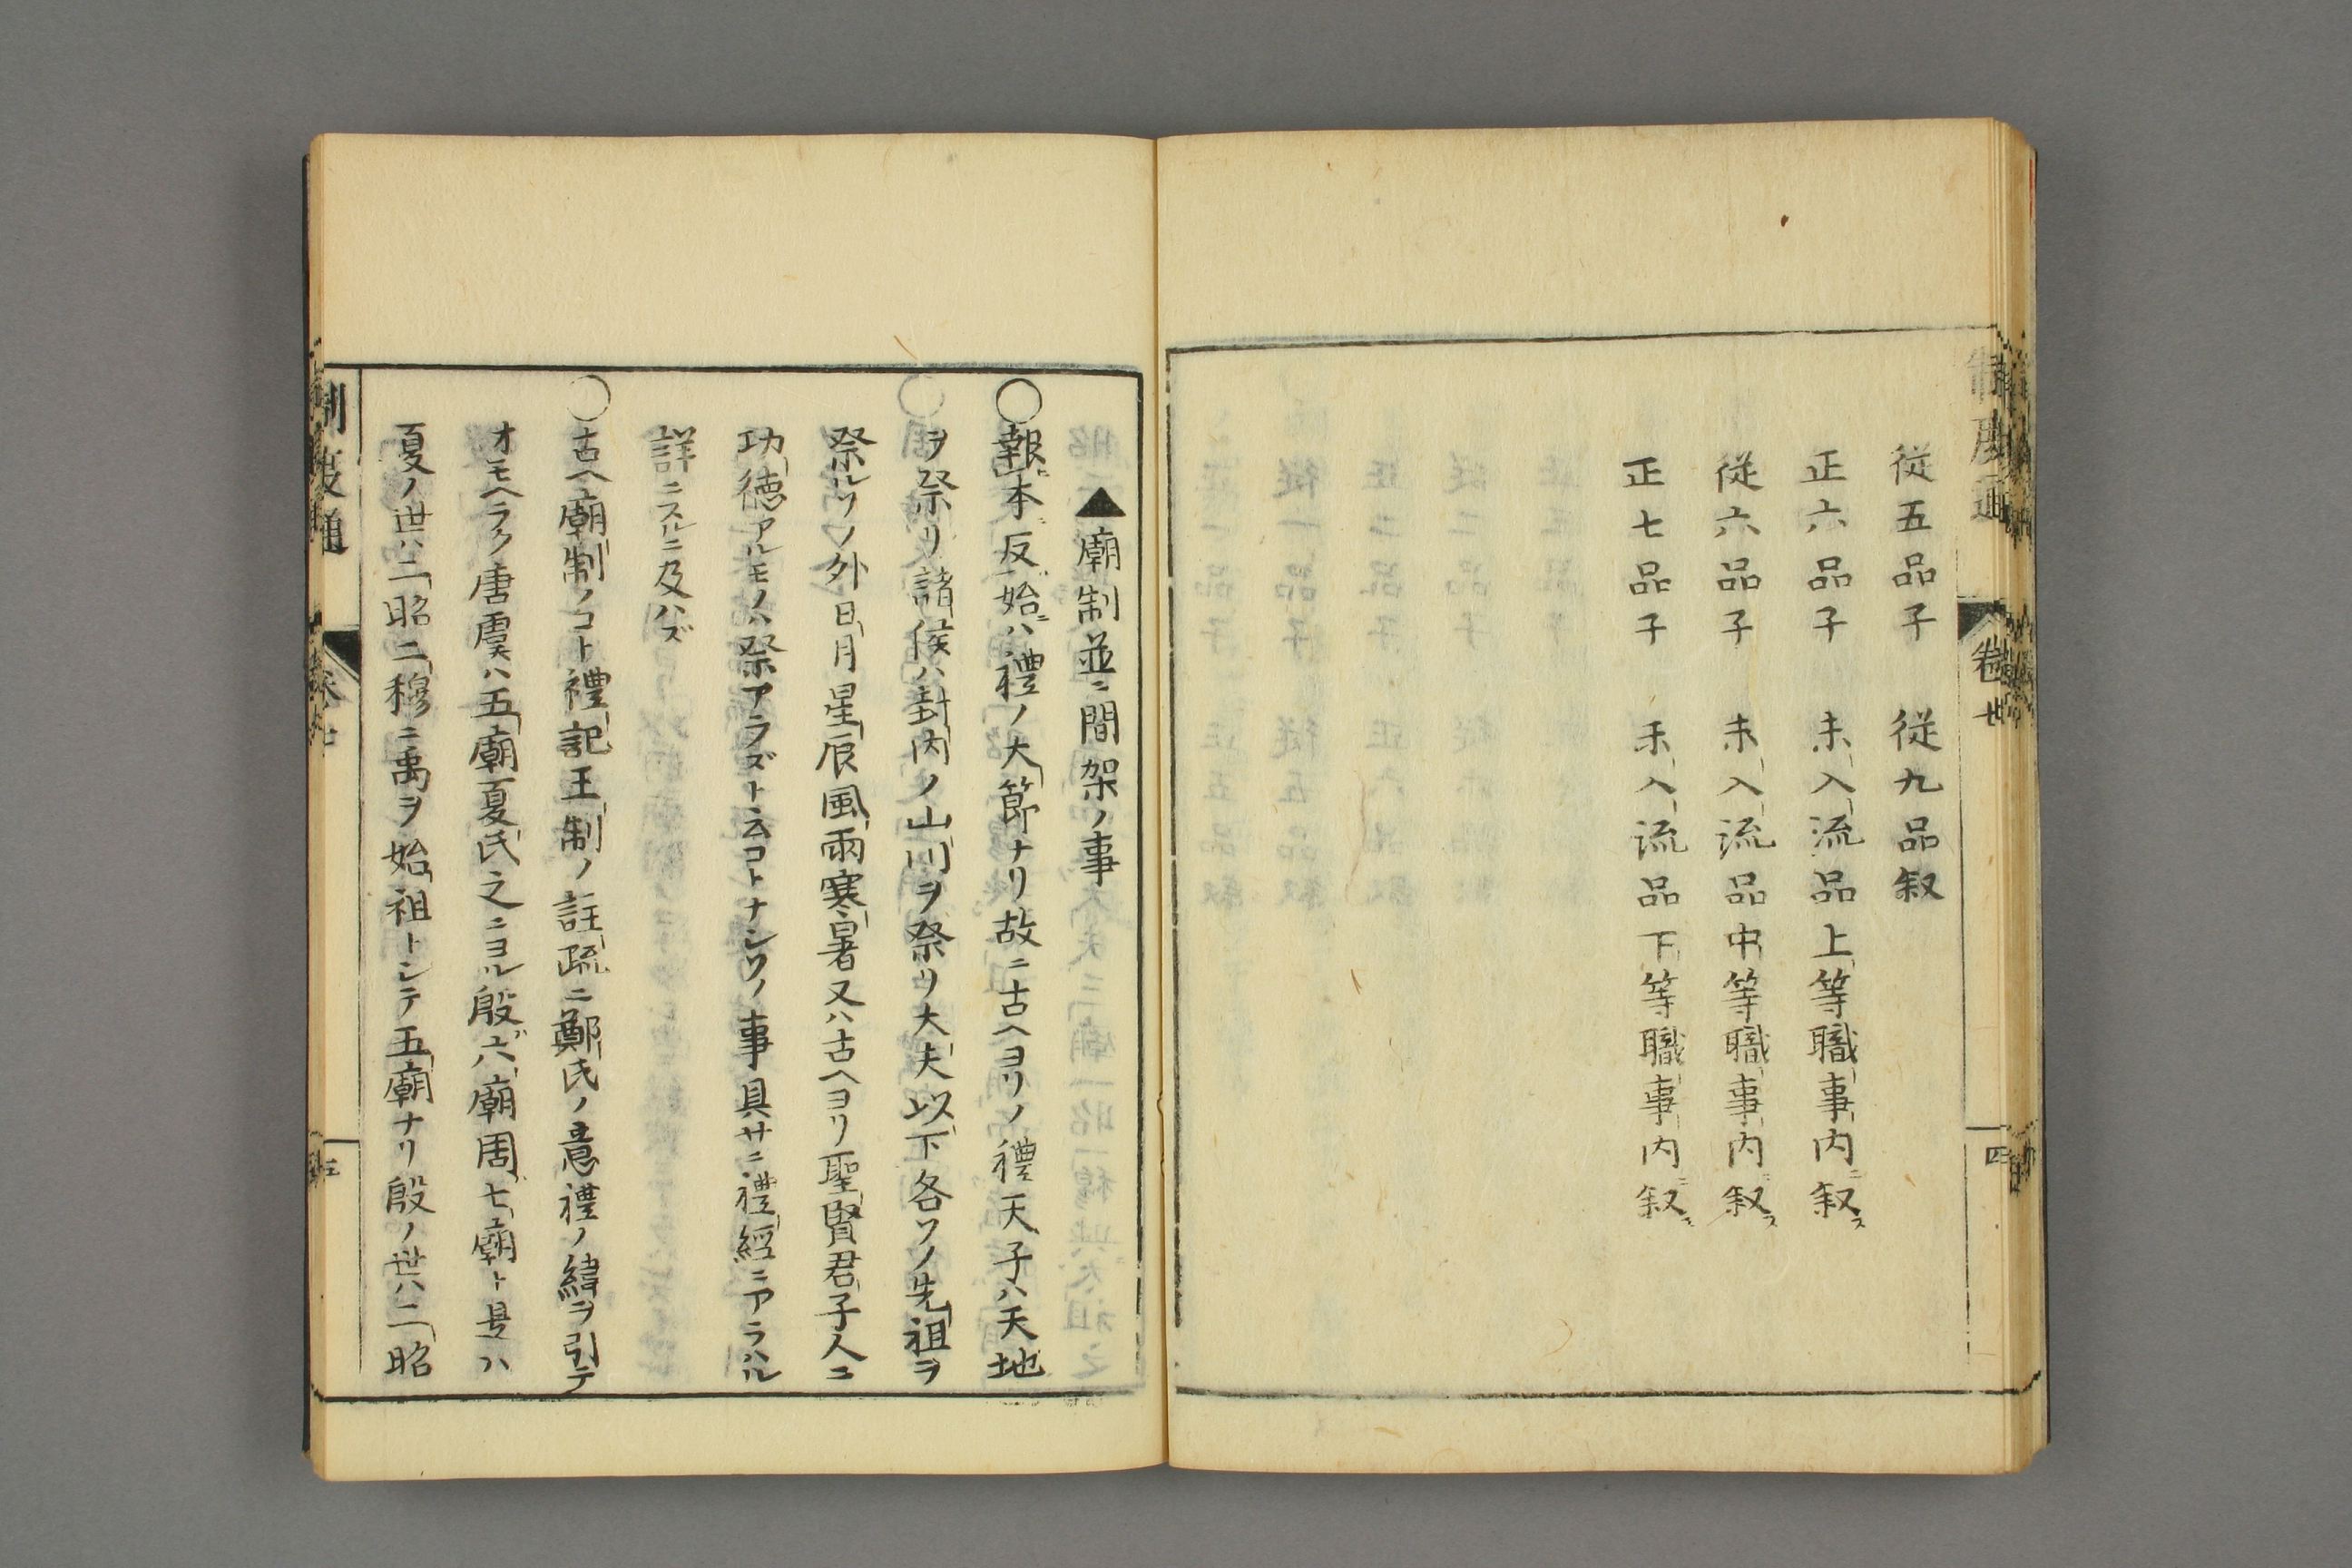 従五品子 従九品叙
正六品子 未入流品上等職事内ニ叙ス
従六品子 未入流品中等職事内ニ叙ス
正七品子 未入流品下等職事内ニ叙ス
▲廟制並ニ間架ノ事
○報本反始ハ禮ノ大節ナリ故ニ古ヘヨリノ禮天子ハ天地
ヲ祭リ諸侯ハ封内ノ山川ヲ祭リ大夫以下各ソノ先祖ヲ
祭ルソノ外日月星辰風雨寒暑又ハ古ヘヨリ聖賢君子人ニ
功徳アルモノハ祭アラズト云コトナシソノ事具サニ禮經ニアラハル
詳ニスルニ及ハズ
○古ヘ廟制ノコト禮記王制ノ註疏ニ鄭氏ノ意禮ノ緯ヲ引テ
オモヘラク唐虞ハ五廟夏氏之ニヨル殷ハ六廟周ハ七廟ト是ハ
夏ノ世ハ二昭二穆ニ禹ヲ始祖トシテ五廟ナリ殷ノ世ハ二昭